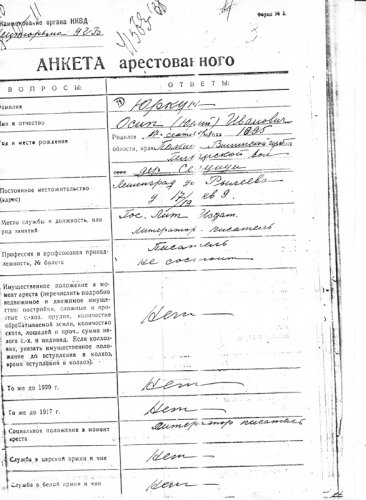 Наименование органа НКВД
Форма № 5.
3
АНКЕТА арестованного
ВОПРОСЫ: ОТВЕТЫ:
Фамилия Юркун
Имя и отчество Осип (Юрий) Иванович
Год и место рождения Родился сентября 1895
области, края
дер.
Постоянное местожительство Ленинград ул Рылеева
(адрес) д 17/19 кв 9.
Место службы и должность, или Гос. Лит Издат.
род занятий литератор-писатель
Профессия и профсоюзная принад- Писатель
лежность, № билета не состоит
Имущественное положение в мо-
мент ареста (перечислить подробно
недвижимое и движимое имуще-
ство: постройки, сложные и про-
стые с.-хоз. орудия, количество
обрабатываемой земли, количество
скота, лошадей и проч., сумма на-
лога с.-х. и индивид. Если колхоз-
ник, указать имущественное поло-
жение до вступления в колхоз,
время вступления в колхоз).
Нет
То же до 1929 г. Нет
То же до 1917 г. Нет
Социальное положение в момент литератор писатель
ареста
Служба в царской армии и чин Нет
Служба в белой армии и чин Нет